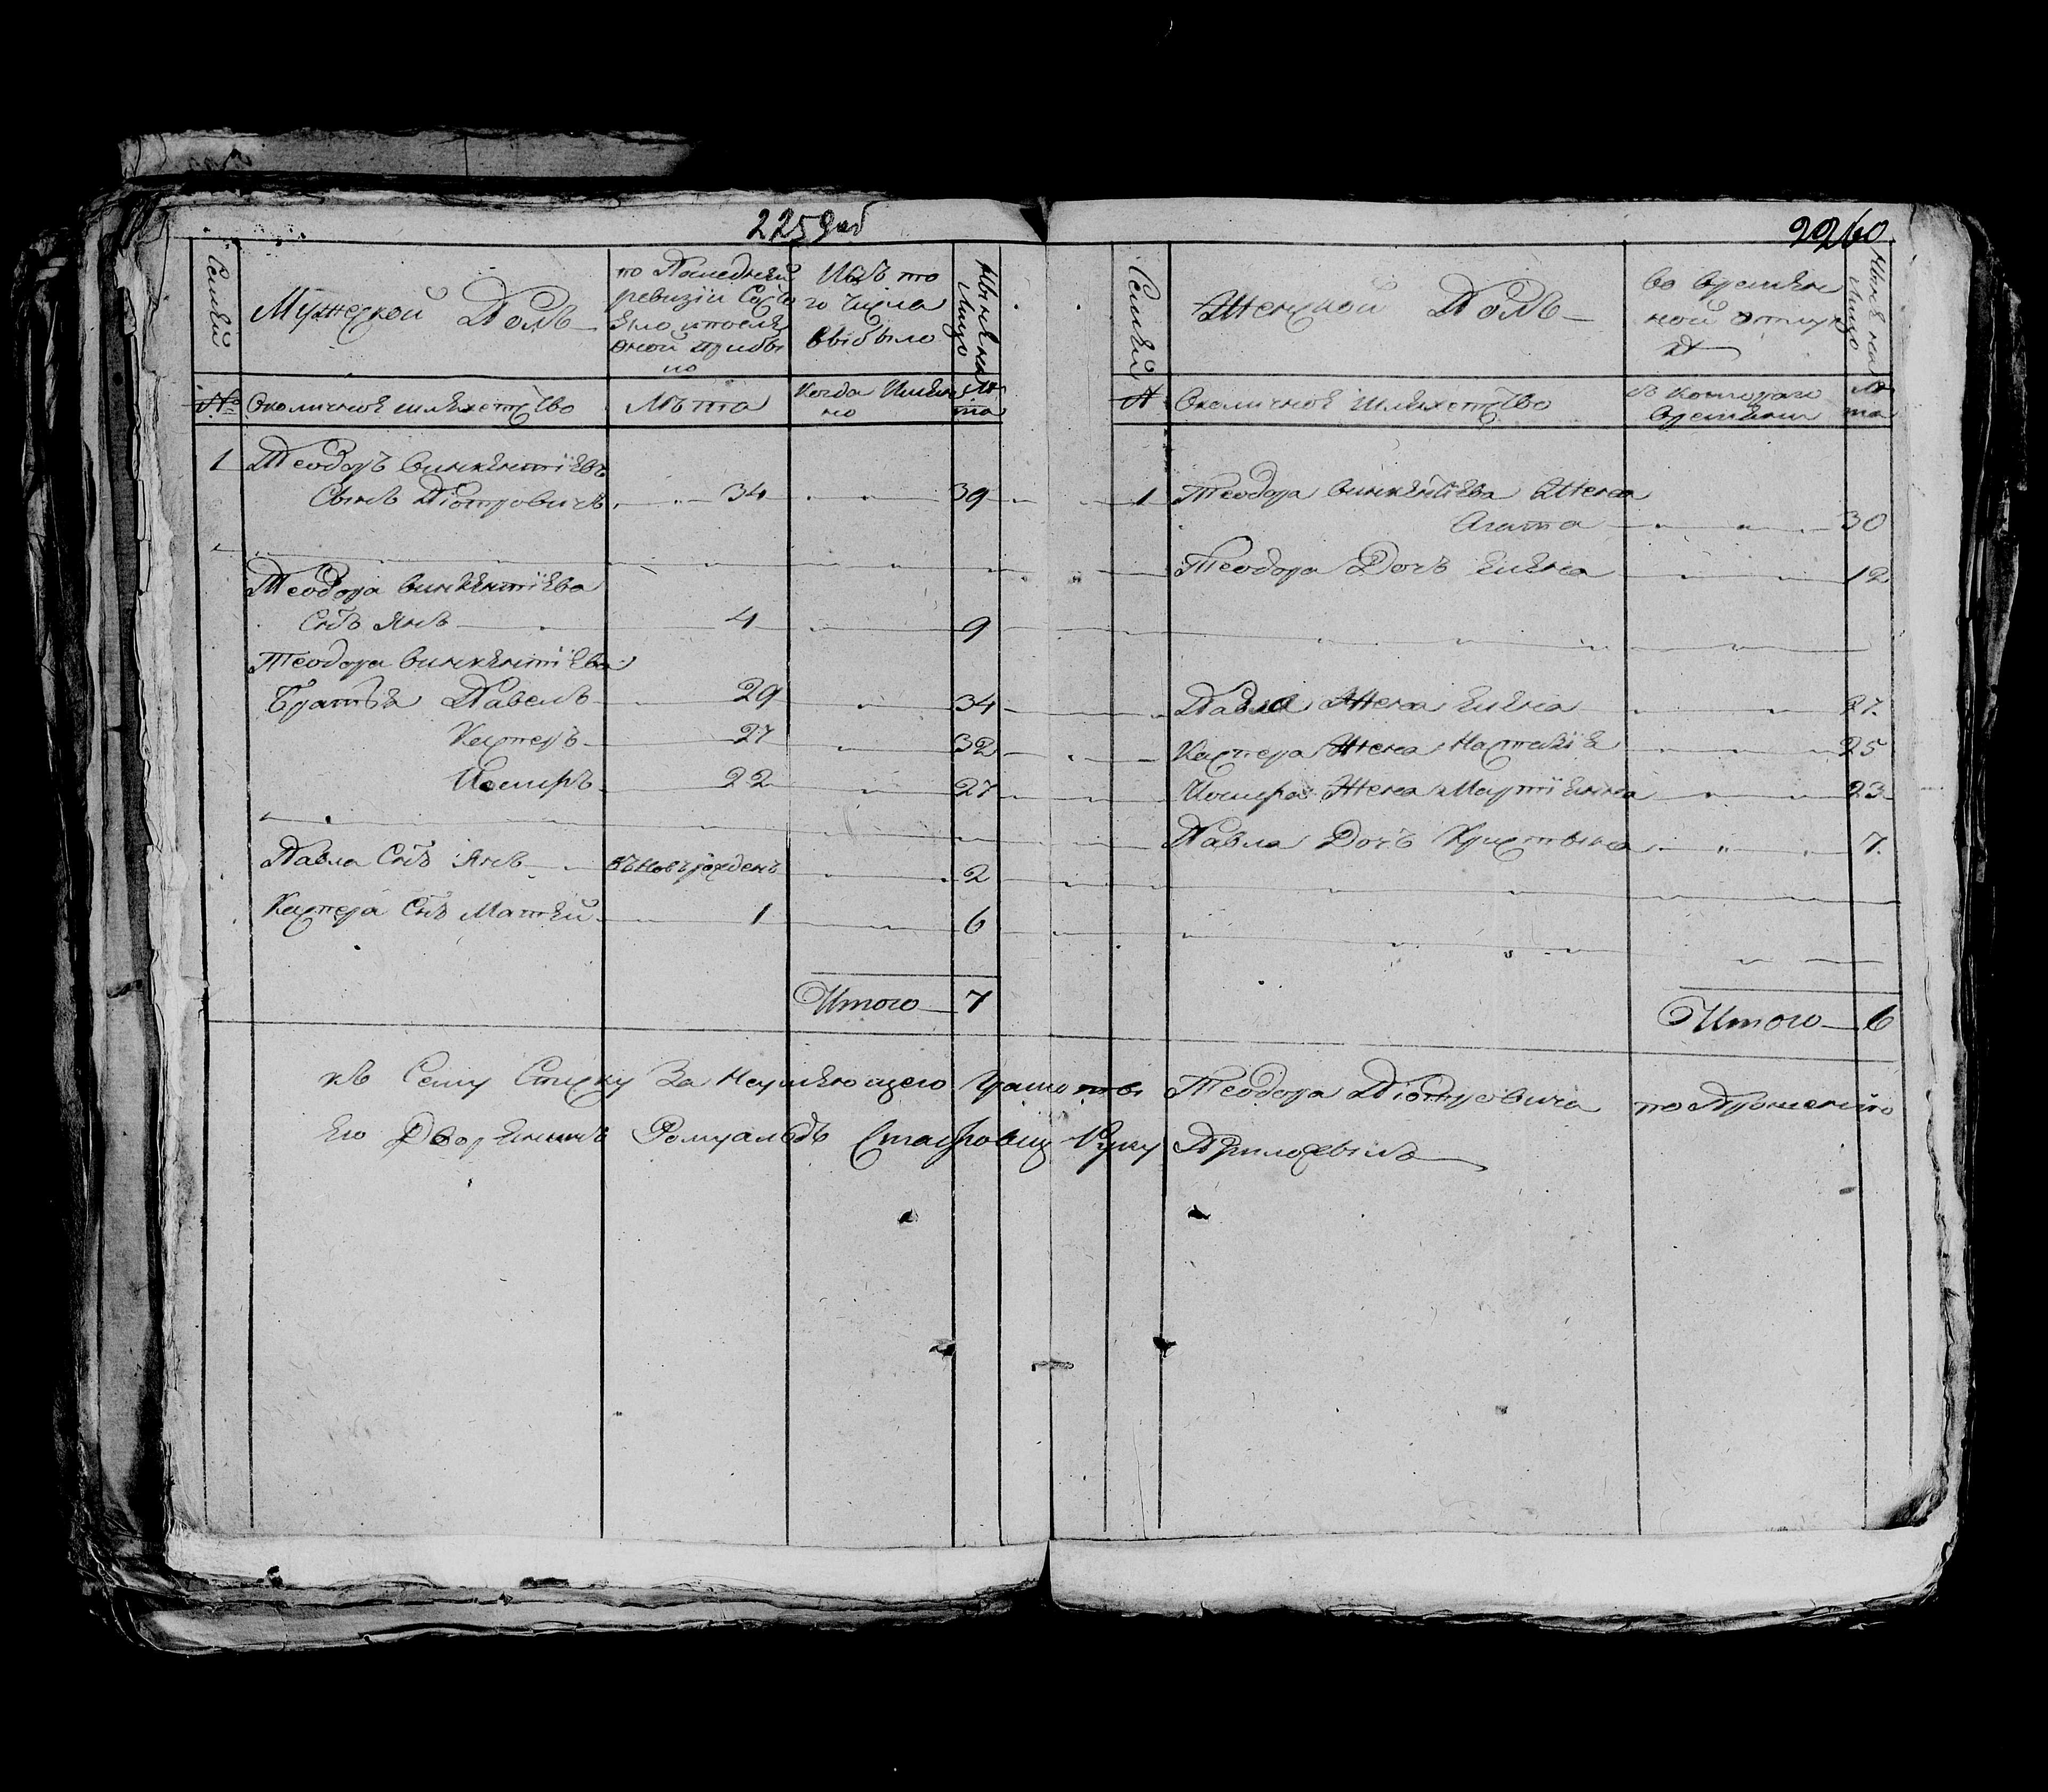 2259 об
Семей
Мужеской Полъ
по Последней
ревизіи Состо
яло и после
оной прибы
ло
Изъ то
го числа
выбыло
Нынѣ на
Лицо
№
Околичное шляхетство
Лѣта
Когда Имян
но
Лѣ
та
1 Теодоръ Винкентіевъ
Сынъ Піотровичъ 34 39
Теодора Винкентіева
Сынъ Янъ 4 9
Теодора Винкентіева
Братья Павелъ 29 34
Касперъ 27 32
Иосифъ 22 27
Павла Сынъ Янъ вновърожденъ 2
Каспера Сынъ Матвей 1 6
Итого 7
2260
Семей
Женской Полъ
Во времян
ной отлуч
ке
Нынѣ на
Лицо
№
Околичное Шляхетство
съ Котораго
времяни
Лѣ
та
1 Теодора Винкентіева Жена
Агата 30
Теодора Дочь Елена 12
Павла Жена Елена 27
Каспера Жена Настазія 25
Иосифа Жена Мартіянна 23
Павла Дочь Кристына 7
Итого 6
къ Сему Списку За Неумѣющего грамоты Теодора Піотровича по Прошенію
Его Дворянинъ Ромуальдъ Руку Приложылъ